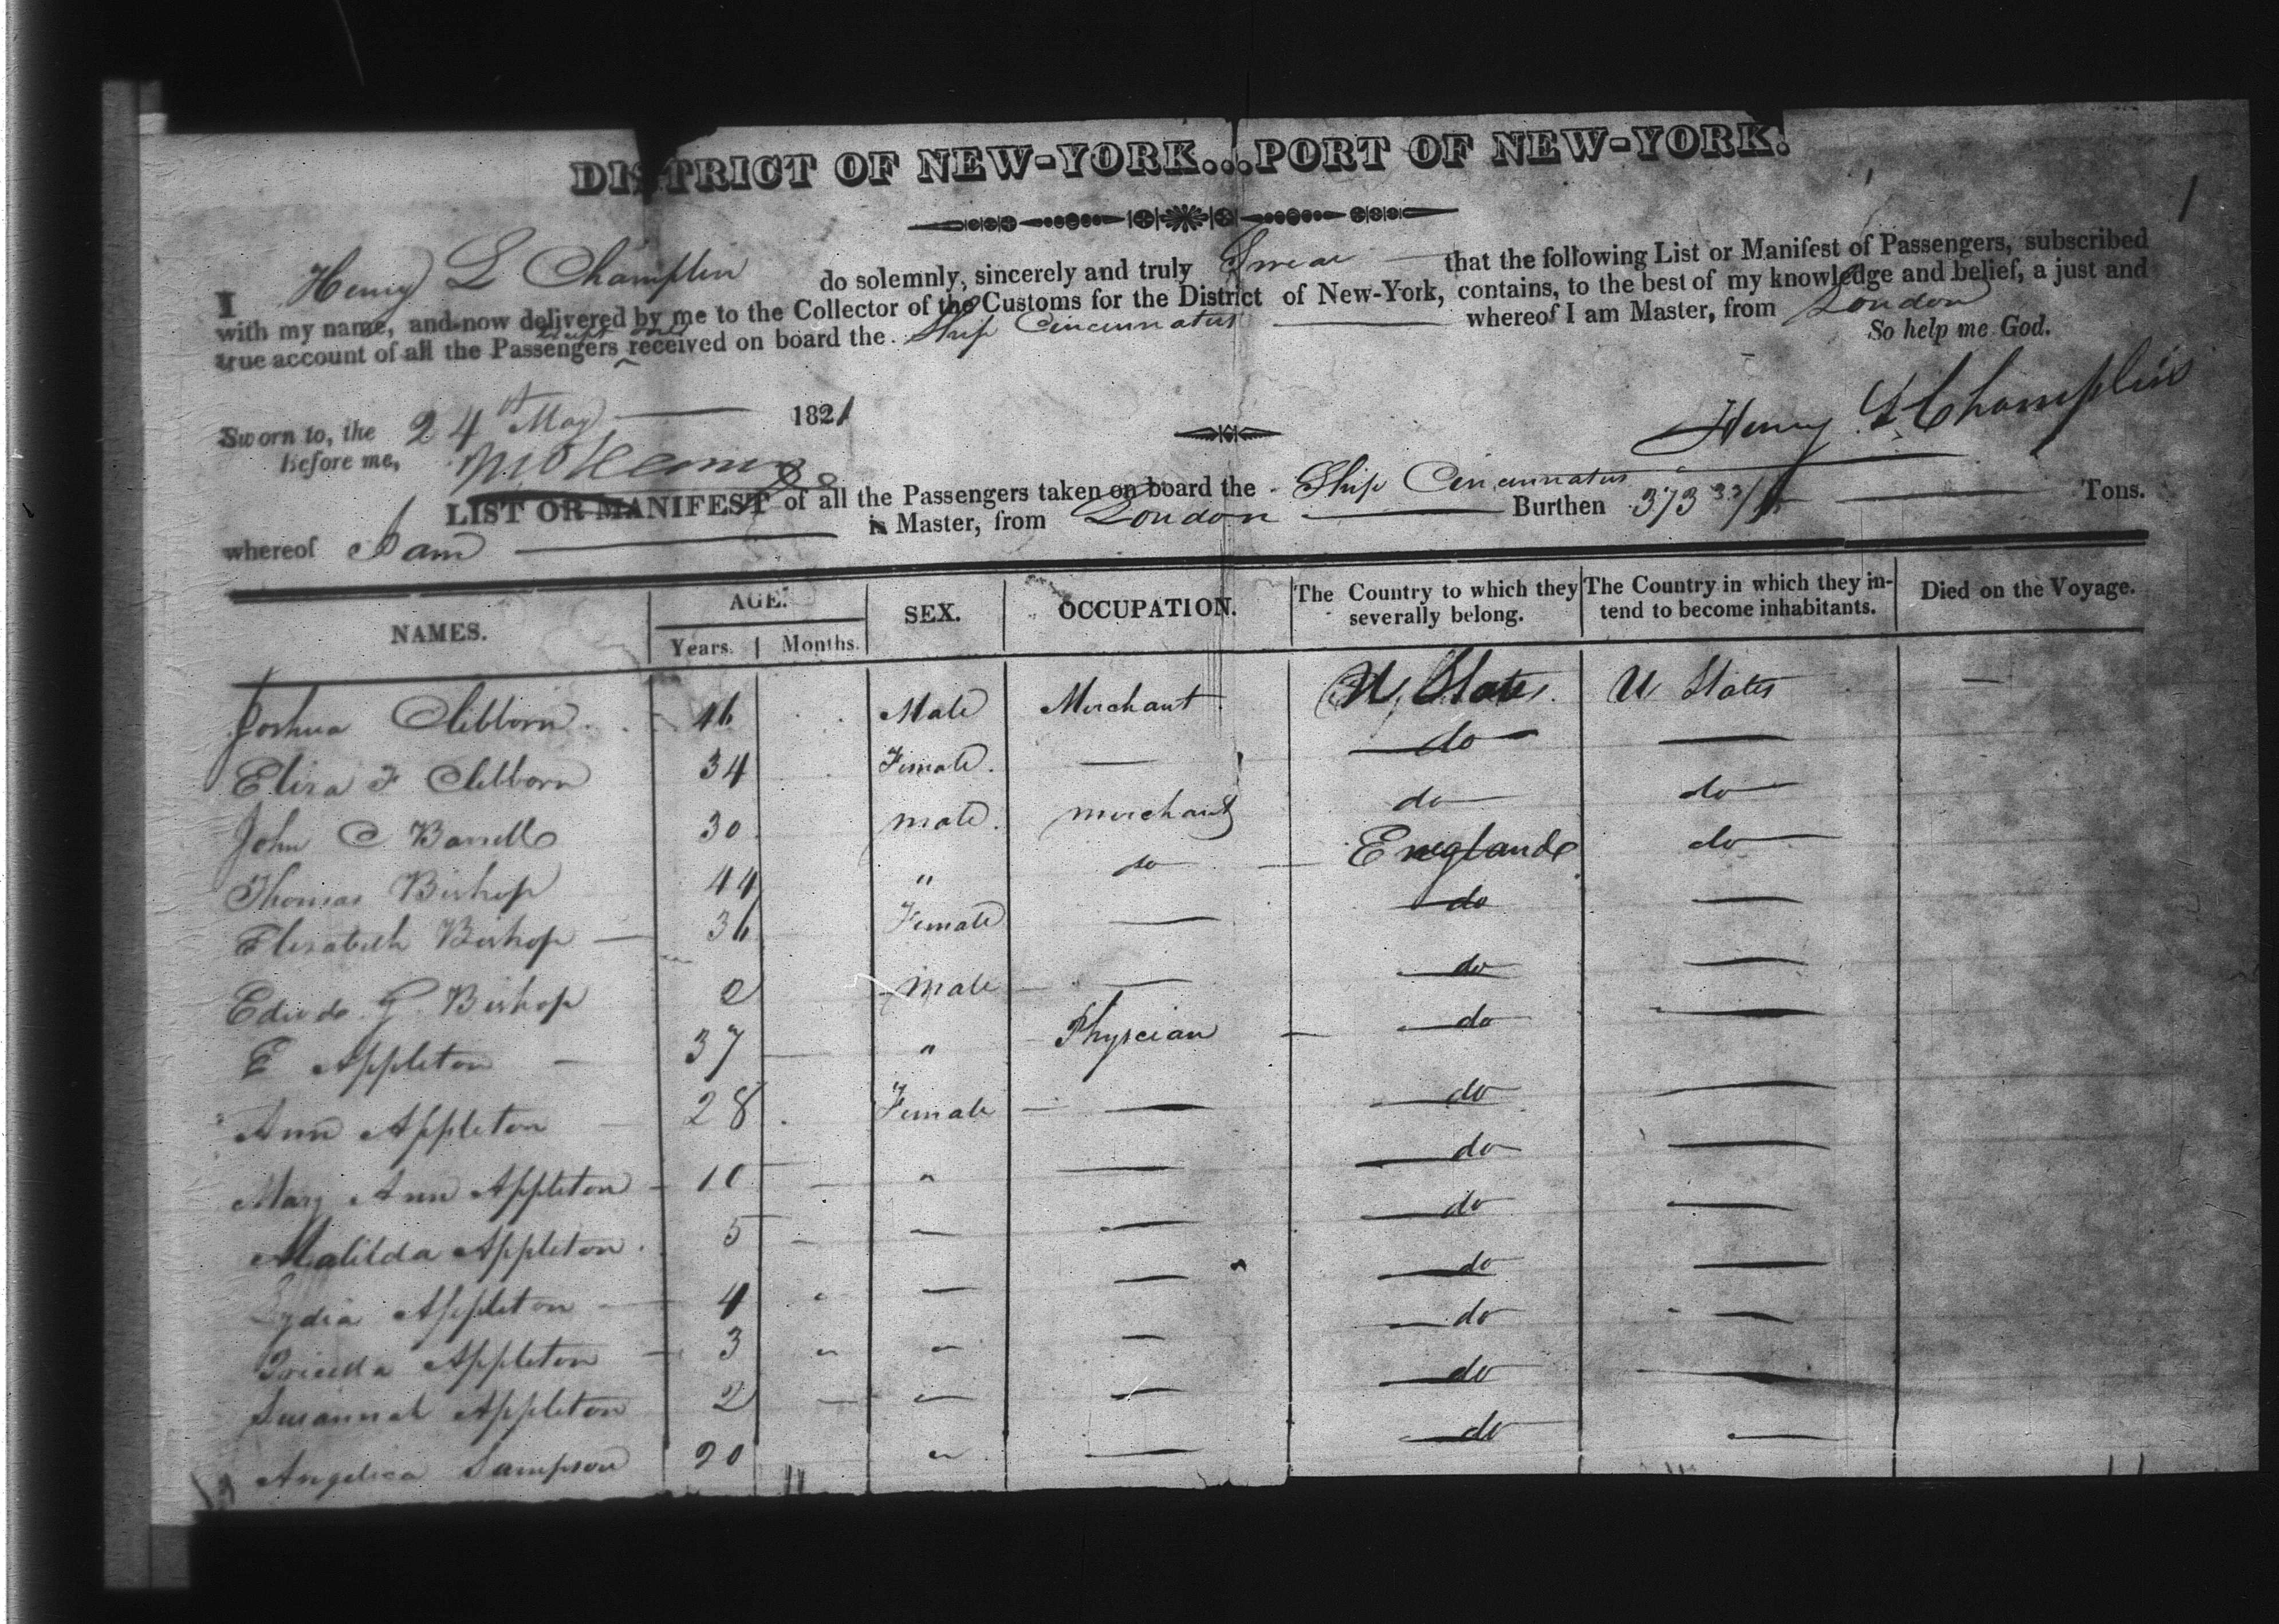 DISTRICT OF NEW-YORK...PORT OF NEW-YORK.
1
I Henry L Champlin do solemnly, sincerely and truly Swear that the following List or Manifest of Passengers, subscribed
with my name, and now delivered by me to the Collector of the Customs for the District of New-York, contains, to the best of my knowledge and belief, a just and
true account of all the Passengers received on board the Ship Cincinnatus whereof I am Master, from London
So help me God.
Sworn to, the 24th May 1821
Before me,
Henry L Champlin
LIST OR MANIFEST of all the Passengers taken on board the Ship Cincinnatus Burthen 373 Tons.
whereof I am is Master, from London
NAMES. AGE. Years. Months. SEX. OCCUPATION. The Country to which they severally belong. The Country in which they in-tend to become inhabitants. Died on the Voyage.
Joshua Clibborn 46 Male Merchant U States. U States —
Eliza F Clibborn 34 Female. — do —
John C Barrell 30 male. merchant do do
Thomas Bishop 44 " do England do
Elizabeth Bishop — 36 Female — do —
Edwd. G. Bishop 2 male — do —
E Appleton — 37 " Physcian do —
Ann Appleton 28 Female — do —
Mary Ann Appleton 10 " — do —
Matilda Appleton 5 — — do —
Lydia Appleton 4 " — — do —
Pricilla Appleton 3 " " — do —
Susannah Appleton 2 — " — do —
Angelica Sampson 20 " — do —